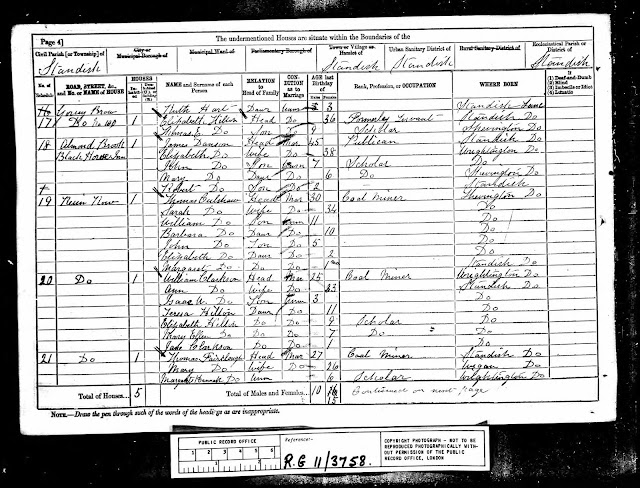 The undermentioned Houses are situate within the Boundaries of the
Page 4]
Civil Parish [or Township] of
Standish
City or
Municipal Borough of
Municipal Ward of
Parliamentary Borough of
Town or Village or Hamlet of
Standish
Urban Sanitary District of
Standish
Rural Sanitary District of
Ecclesiastical Parish or District of
Standish
No. of Schedule
ROAD, STREET, &c., and No. or NAME of HOUSE
HOUSES
NAME and Surname of each Person
RELATION to Head of Family
CONDITION as to Marriage
AGE last Birthday of
Males Females
Rank, Profession, or OCCUPATION
WHERE BORN
If
(1) Deaf-and-Dumb
(2) Blind
(3) Imbecile or Idiot
(4) Lunatic
Ruth Hart Daur 3 Standish Lanc
17 Do 1 Elizabeth Head Do 36 Standish Do
Do Son Do 9 Scholar Shevington Do
18 Almond Brook 1 James Dawson Head Mar 45 Publican Standish Do
Black Horse Inn Elizabeth Do Wife Do 38 Wrightington Do
John Do Son 7 Scholar Do
Mary Do Daur Do 6 Do Shevington Do
Robert Do Son Do 2 Standish
19 1 Thomas Head Mar 30 Coal Miner Shevington Do
Sarah Do Wife Do 34 Do
William Do Son 11 Do
Barbara Do Daur Do 10 Do
John Do Son Do 5 Do
Elizabeth Do Daur Do 2 Do
Margaret Do Do Do Standish Do
20 Do 1 William Clarkson Head Mar 25 Coal Miner Wrightington Do
Ann Do Wife Do 23 Standish Do
Isaac W. Do Son 3 Do
Teresa Hilton Daur Do 11 Do
Elizabeth Hilton Do Do 9 Scholar Do
Mary Ellen Do Do Do 7 Do Do
Jane Clarkson Do Do 1 Do
21 Do 1 Thomas Fairclough Head Mar 27 Coal Miner Standish Do
Mary Do Wife Do 26 Wigan Do
Do 6 Scholar Wrightington Do
Total of Houses... 5
Total of Males and Females... 10
15
Continued on next page
NOTE.—Draw the pen through such of the words of the headings as are inappropriate.
PUBLIC RECORD OFFICE
1 2 3 4 5 6
Reference:-
R.G 11/3758.
COPYRIGHT PHOTOGRAPH - NOT TO BE
REPRODUCED PHOTOGRAPHICALLY WITH-
OUT PERMISSION OF THE PUBLIC
RECORD OFFICE, LONDON